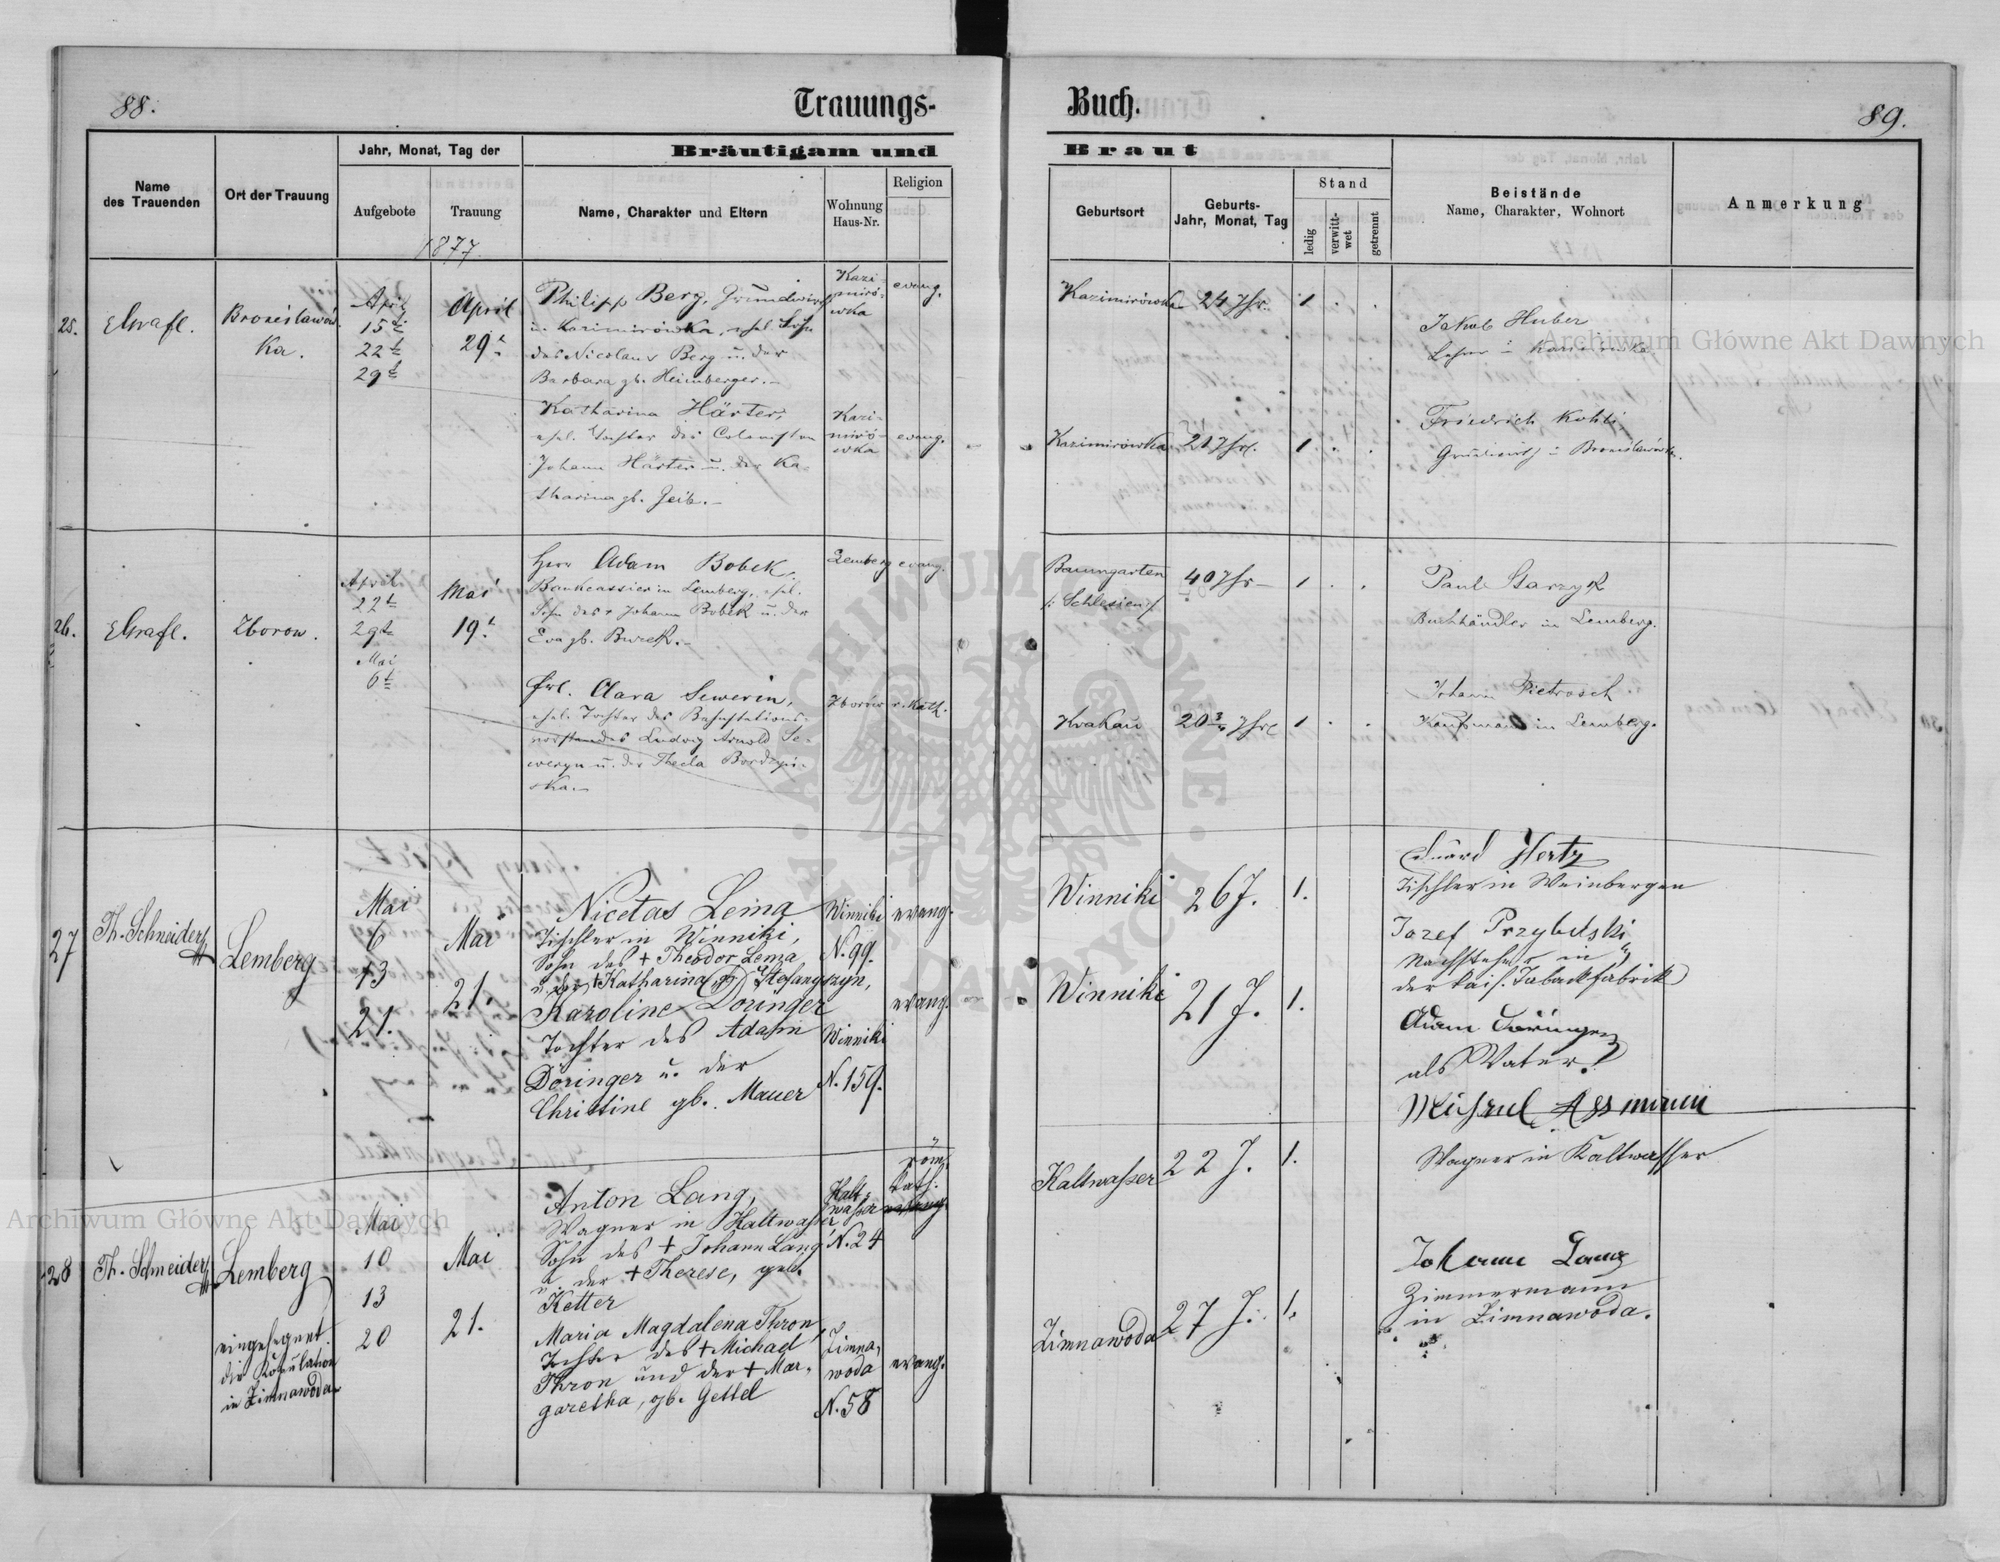 88.
Trauungs-
Buch.
89.
Name
des Trauenden
Ort der Trauung
Jahr, Monat, Tag der
Aufgebote
Trauung
1877.
Bräutigam und
Braut
Name, Charakter und Eltern
Wohnung
Haus-Nr.
Religion
Geburtsort
Geburts-
Jahr, Monat, Tag
Stand
ledig
verwitt-
wet
getrennt
Beistände
Name, Charakter, Wohnort
Anmerkung
25.
EGrafl.
Bronislawów
ka.
April
15t
22t
29t
April
29t
Philipp Berg, Grundwirth
in Kazimirówka, ehel. Sohn
des Nicolaus Berg u. der
Barbara gb. Heimberger.-
Kazi-
miró-
wka
evang.
Kazimirówka
24 Jhr.
1
Jakob Huber
Lehrer in Kazimirówka
Katharina Härter,
ehel. Tochter des Colonisten
Johann Härter u. der Ka-
tharina gb. Geib.-
Kazi-
miró-
wka
evang.
Kazimirówka
21 Jhr.
1
Friedrich Kohli
Grundwirth in Bronislawówka.
26.
EGrafl.
Zborow.
April
22t
29t
Mai
6t
Mai
19t
Herr Adam Bobek,
Bankcassier in Lemberg, ehel.
Sohn des + Johann Bobek u. der
Eva gb. Burek.-
Lemberg
evang.
Baumgarten
/: Schlesien :/
40 Jhr
1
Paul Starzyk
Buchhändler in Lemberg.
Frl. Clara Sewerin,
ehel. Tochter des Bahnstations-
vorstandes Ludwig Arnold Se-
weryn u. der Thecla Bordzyi-
ska.-
Zborów
r. Kath.
Krakau
20 3/4 Jhr
1
Johann Pietrosch
Kaufmann in Lemberg.
27
Th. Schneider
Lemberg
Mai
6
13
21.
Mai
21.
Nicetas Lema
Tischler in Winniki,
Sohn des + Theodor Lema
u. der + Katharina gb. Stefanyszyn,
Winniki
N. 99.
evang.
Winniki
26 J.
1.
Eduard Hertz
Tischler in Weinbergen
Jozef Przybilski
Nachsteher in
der kais. Tabackfabrik
Karoline Doringer
Tochter des Adam
Döringer u. der
Christine gb. Mauer
Winniki
N. 159.
evang.
Winniki
21 J.
1.
Adam Döringer
als Vater.
28
Th. Schneider
Lemberg
eingesegnet
die Kopulation
in Zimnawoda
Mai
10
13
20
Mai
21.
Anton Lang,
Wagner in Kaltwasser
Sohn des + Johann Lang
u. der + Therese, geb.
Ketter
Kalt-
wasser
N. 24
röm.
kath.
Kaltwasser
22 J.
1.
Michael Assmann
Wagner in Kaltwasser
Maria Magdalena Thron,
Tochter des + Michael
Thron und der + Mar-
garetha, gb. Gettel
Zimna-
woda
N. 58
evang.
Zimnawoda
27 J.
1.
Johann Lang
Zimmermann
in Zimnawoda.
Archiwum Główne Akt Dawnych
Archiwum Główne Akt Dawnych
ARCHIWUM GŁÓWNE AKT DAWNYCH